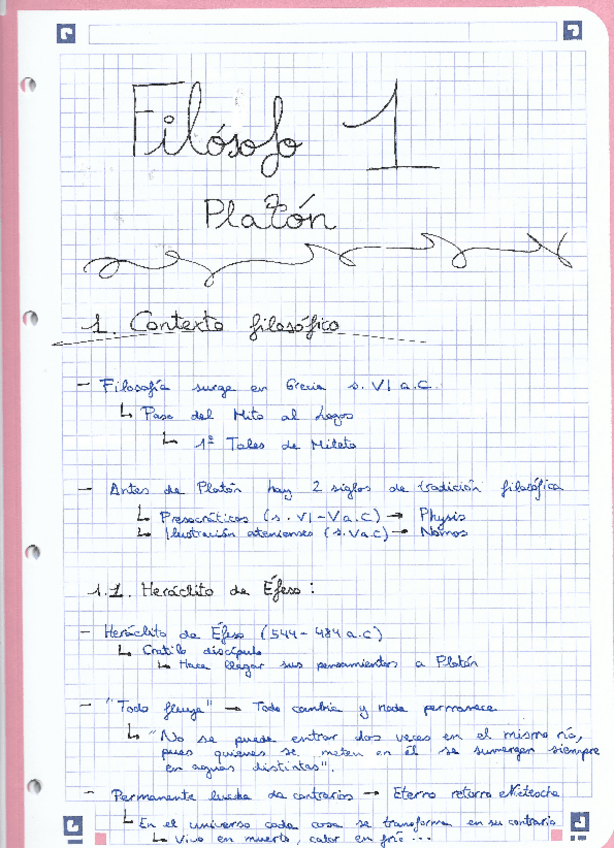 Filósofo 1
Platón
1. Contexto filosófico
- Filosofía surge en Grecia s. VI a.C.
↳ Paso del Mito al Logos
↳ 1º Tales de Mileto
- Antes de Platón hay 2 siglos de tradición filosófica
↳ Presocráticos (s. VI-V a.C) → Physis
↳ Ilustración ateniense (s. V a.C) → Nomos
1.1. Heráclito de Éfeso:
- Heráclito de Éfeso (544-484 a.c)
↳ Cratilo discípulo
↳ Hace llegar sus pensamientos a Platón
- "Todo fluye" → Todo cambia y nada permanece
↳ "No se puede entrar dos veces en el mismo río,
pues quienes se meten en él se sumergen siempre
en aguas distintas".
- Permanente lucha de contrarios → Eterno retorno Nietzsche
↳ En el universo cada cosa se transforma en su contrario
↳ Vivo en muerto, calor en frío ...